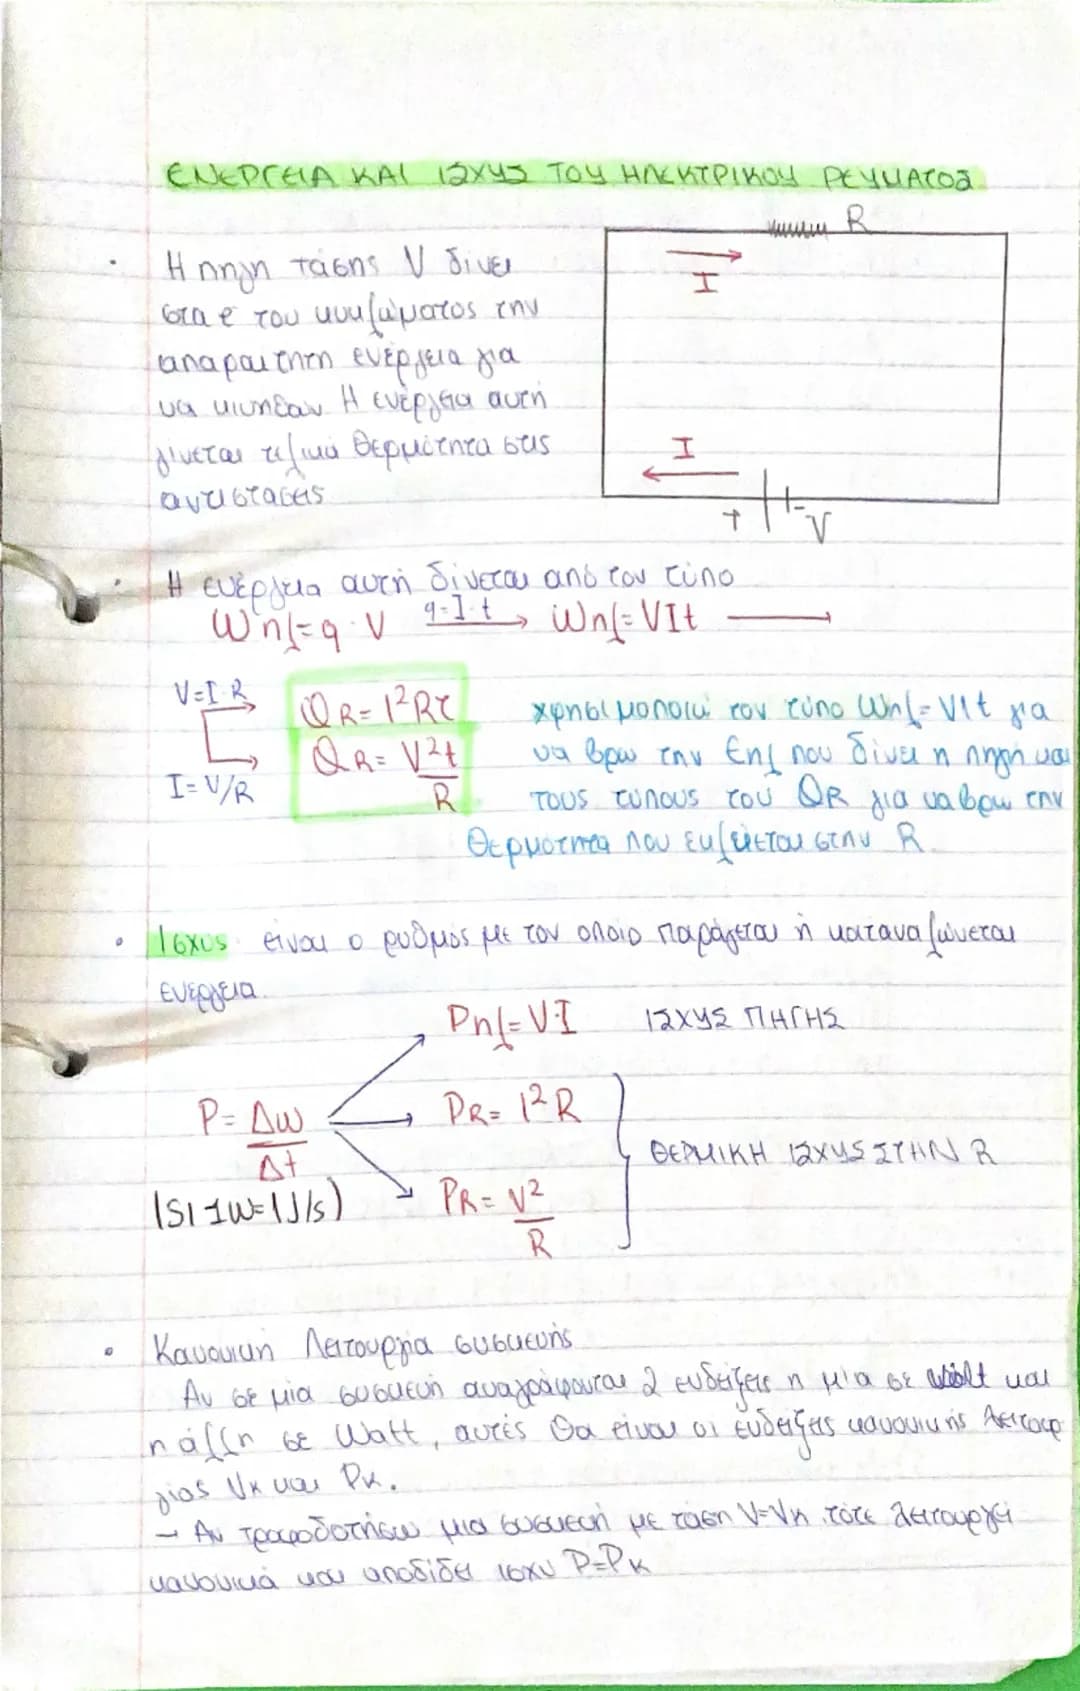 ΕΝΕΡΓΕΙΑ ΚΑΙ ΙΣΧΥΣ ΤΟΥ ΗΛΕΚΤΡΙΚΟΥ ΡΕΥΜΑΤΟΣ
R
I
• Η πηγη τάσης V δίνει
στα e του κυκλώματος την
απαραίτητη ενέργεια για
να κινηθούν. Η ενέργεια αυτή
γίνεται τελικά θερμότητα στις
αντιστάσεις
I
+ - V
• Η ενέργεια αυτή δίνεται από τον τύπο
Wηλ=q·V q=I·t → Wηλ=VIt →
V=I·R
I=V/R
QR=I²Rt
QR=V²t/R
χρησιμοποιώ τον τύπο Wηλ=VIt για
να βρω την Εηλ που δίνει η πηγή και
τους τύπους του QR για να βρω την
θερμότητα που εκλύεται στην R.
• Ισχύς είναι ο ρυθμός με τον οποίο παράγεται ή καταναλώνεται
ενέργεια.
Pηλ=V·I ΙΣΧΥΣ ΠΗΓΗΣ
P=ΔW/Δt
(SI 1W=1J/s)
PR=I²R
PR=V²/R
ΘΕΡΜΙΚΗ ΙΣΧΥΣ ΣΤΗΝ R
• Κανονική Λειτουργία συσκευής
Αν σε μια συσκευή αναγράφονται 2 ενδείξεις η μία σε Volt και
η άλλη σε Watt, αυτές θα είναι οι ενδείξεις κανονικής λειτουρ
γίας Vκ και Pκ.
→ Αν τροφοδοτήσω μια συσκευή με τάση V=Vκ τότε λειτουργεί
κανονικά και αποδίδει ισχύ P=Pκ